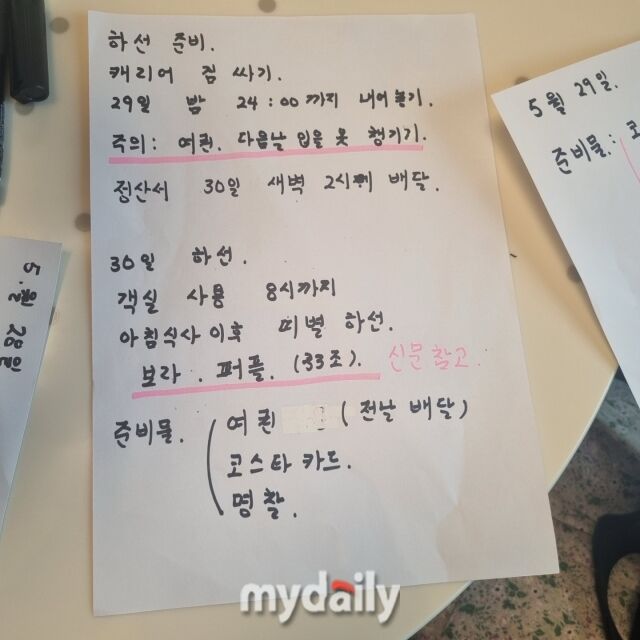 하선 준비.
캐리어 짐 싸기.
29일 밤 24:00까지 내어놓기.
주의: 여권. 다음날 입을 옷 챙기기.
정산서 30일 새벽 2시쯤 배달.
30일 하선.
객실 사용 8시까지
아침식사 이후 띠별 하선.
보라. 퍼플. (33조). 신문참고.
준비물. 여권 (전날 배달)
코스타 카드.
명찰.
5월 29일.
준비물:
5월 28일
mydaily